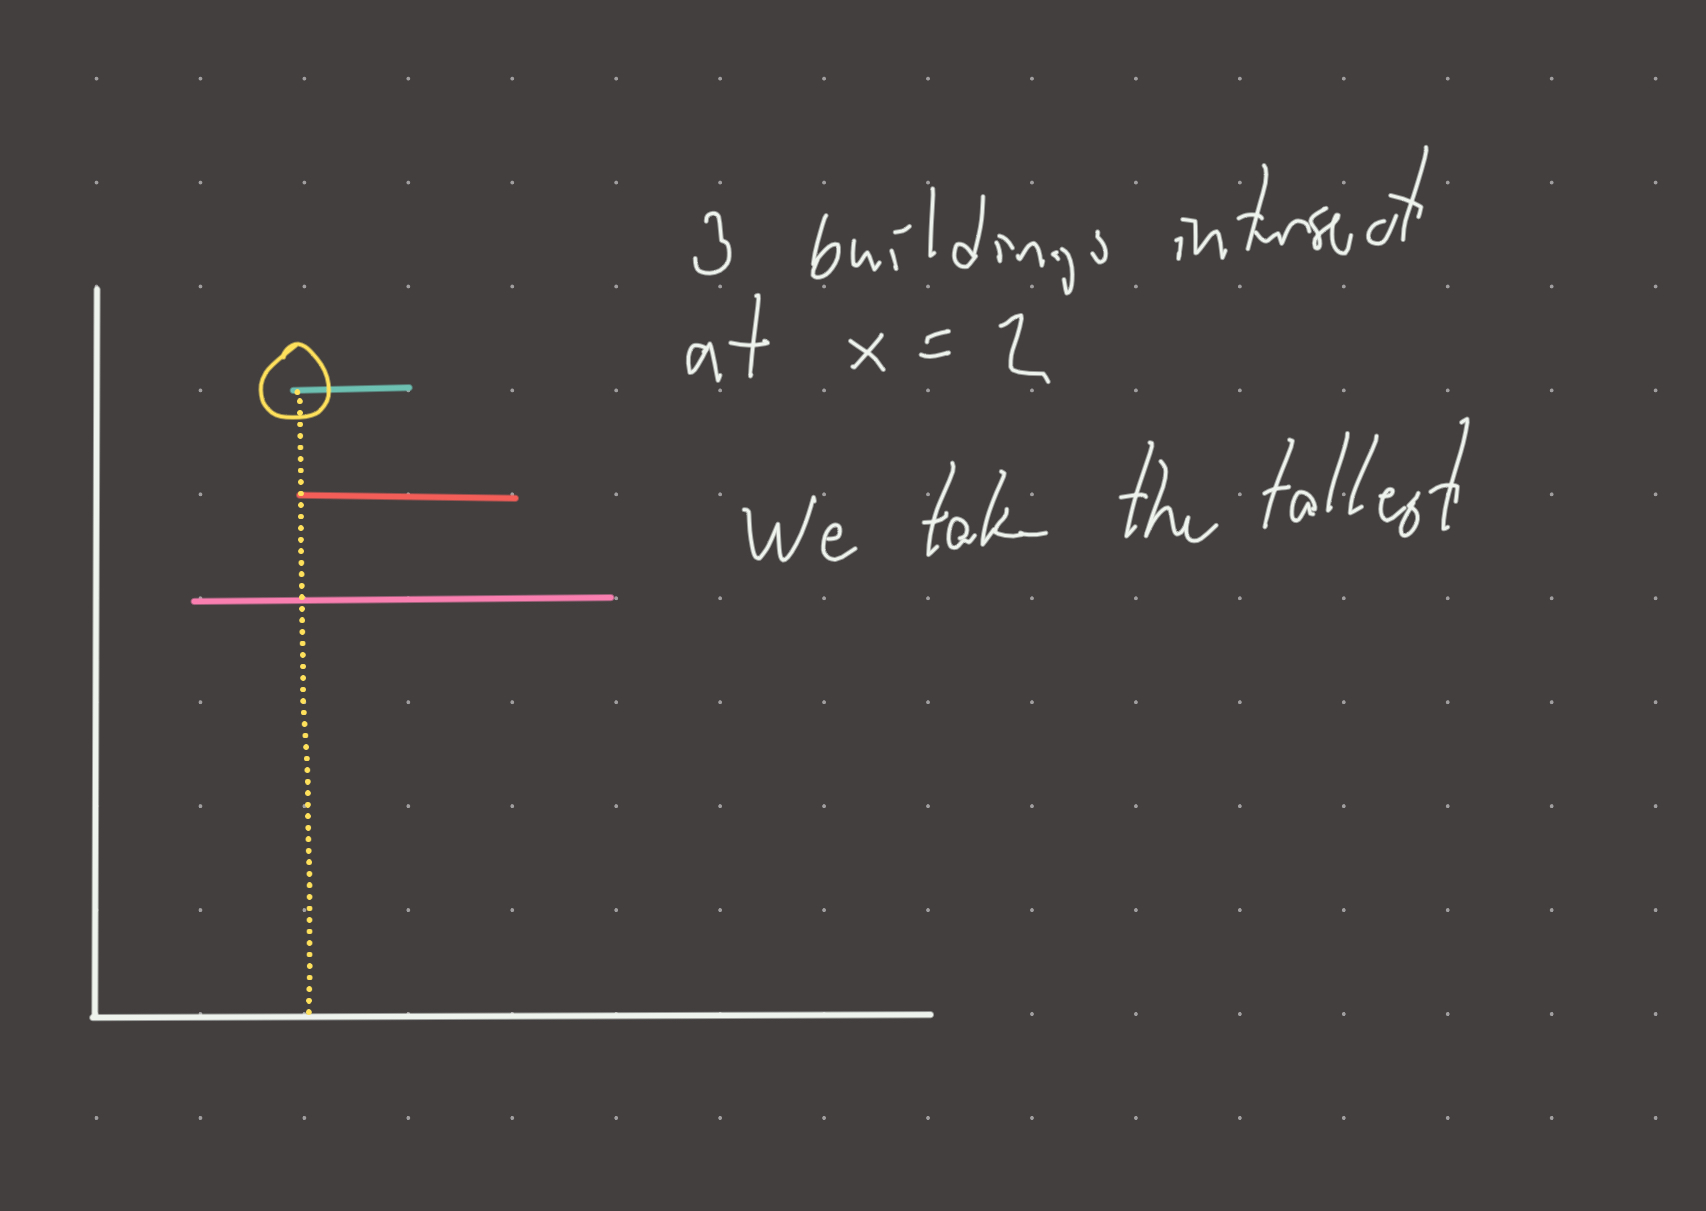 3 buildings intersect
at x = 2
We take the tallest